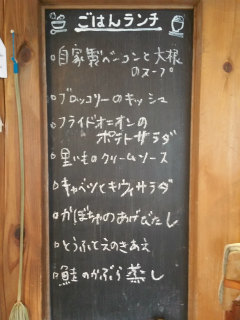 ごはんランチ
自家製ベーコンと大根
のスープ
ブロッコリーのキッシュ
フライドオニオンの
ポテトサラダ
里いものクリームソース
キャベツとキウイサラダ
かぼちゃのあげびたし
とうふとえのきあえ
鮭のかぶら蒸し